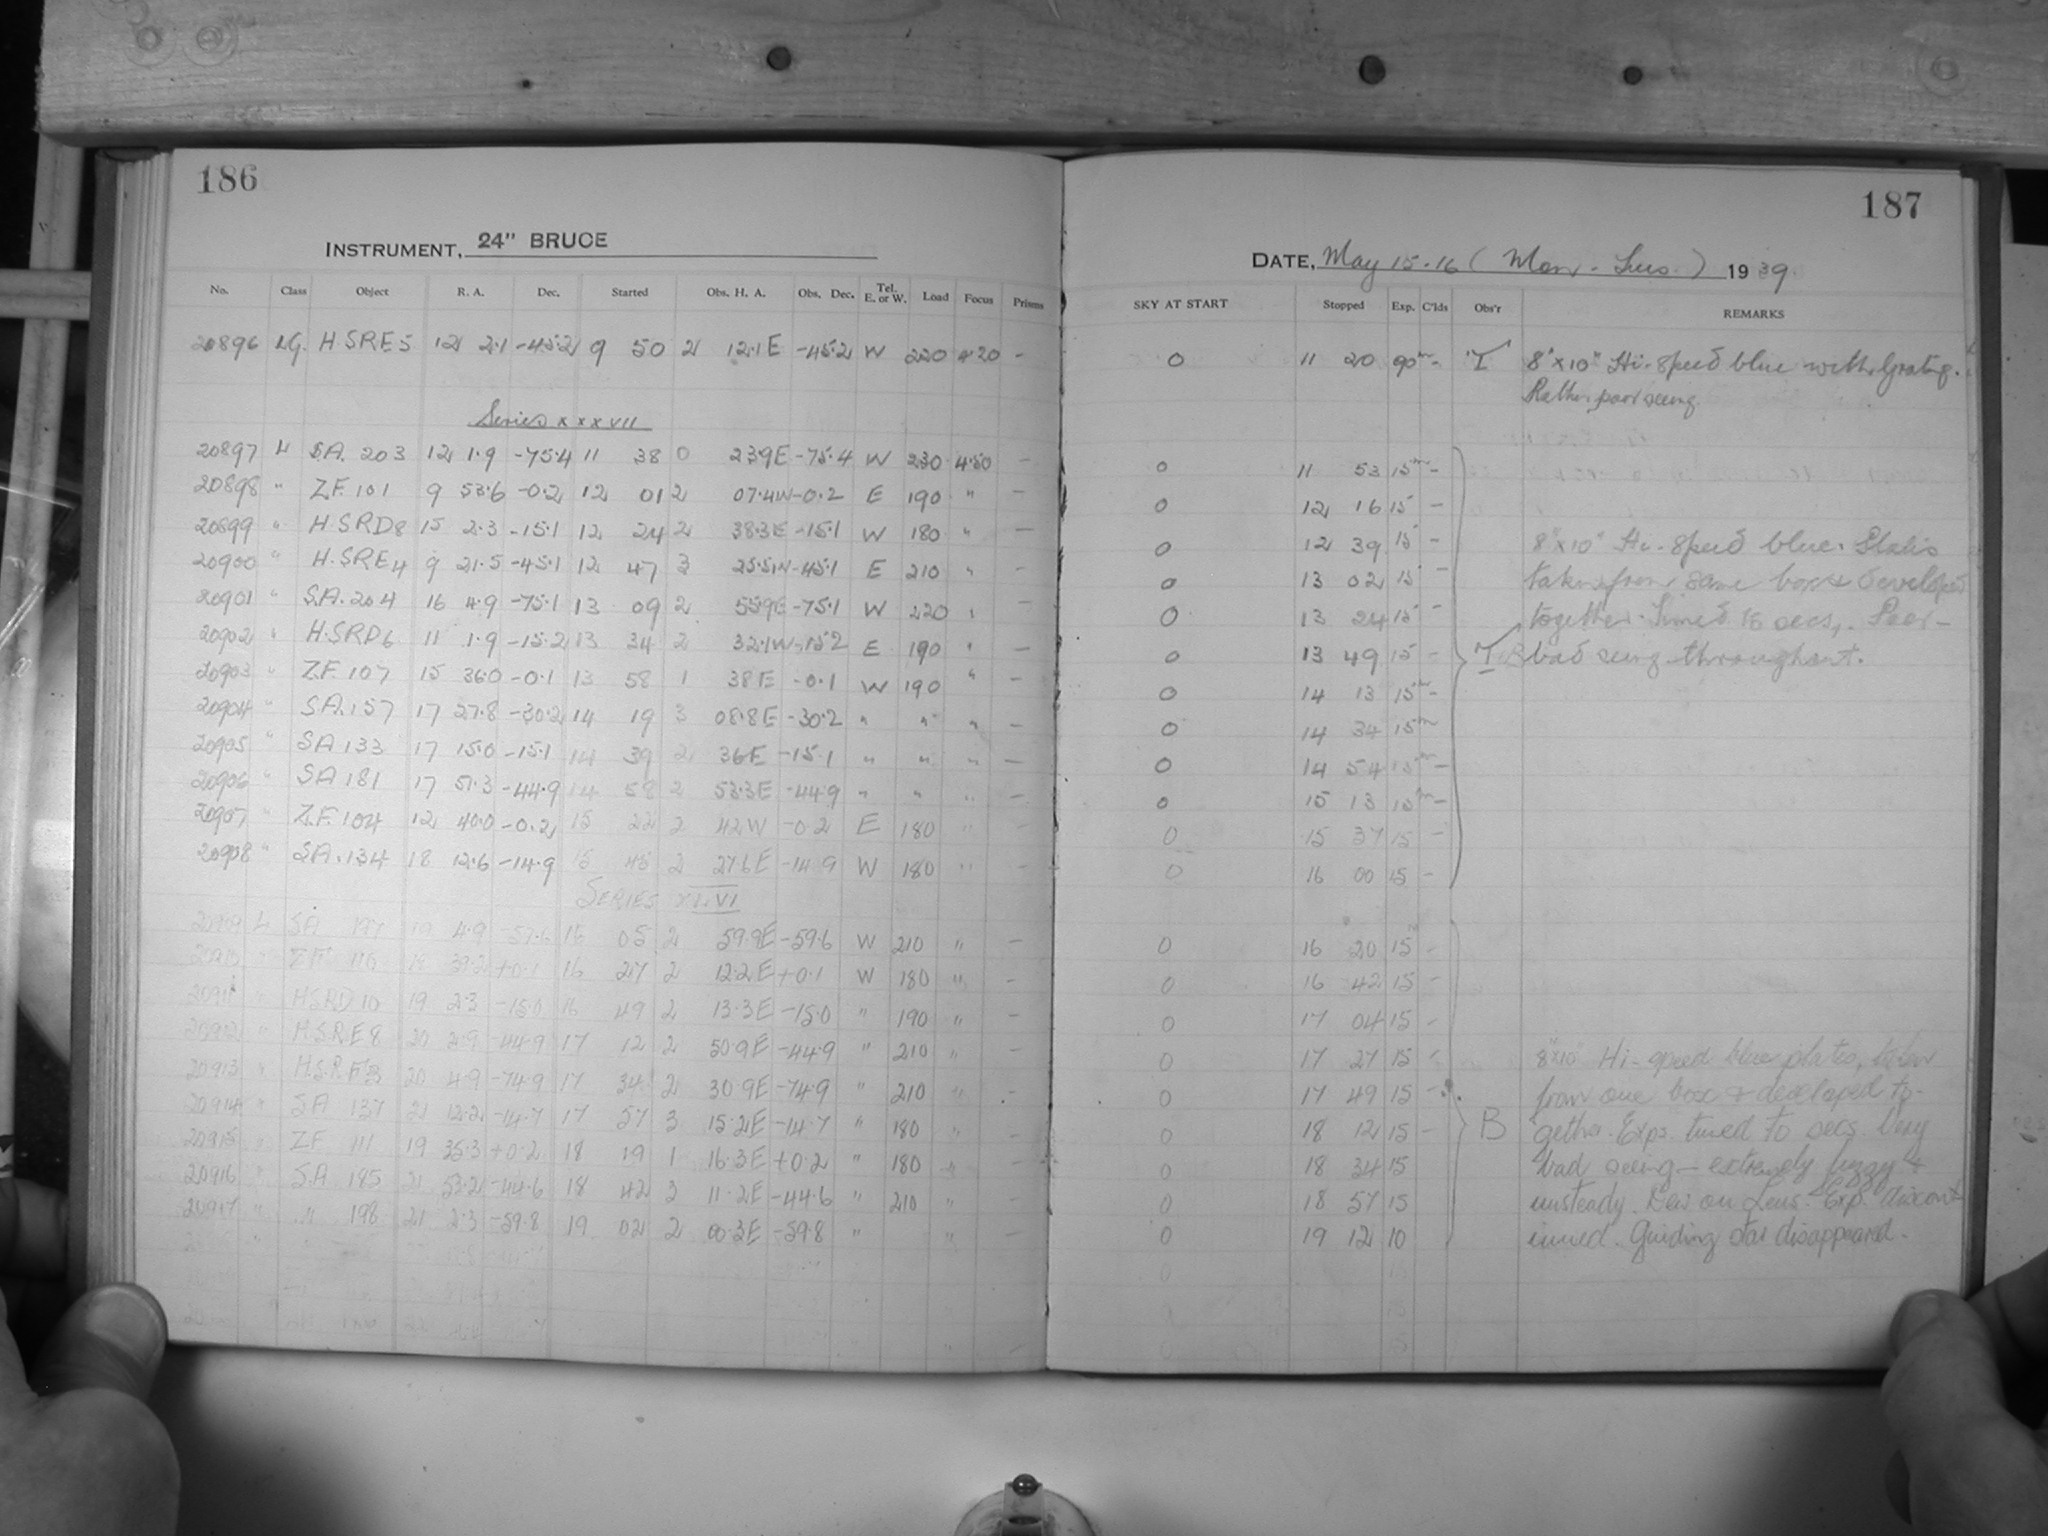 186
INSTRUMENT, 24" BRUCE
No. Class Object R. A. Dec. Started Obs. H. A. Obs. Dec. Tel. E. or W. Load Focus Prisms
20896 LG. H.SRE5 12 2.1 -45.2 9 50 2 12.1E -45.2 W 220 4.20 -
Series XXXVII
20897 L S.A. 203 12 1.9 -75.4 11 38 0 23.9E -75.4 W 230 4.50 -
20898 " Z.F. 101 9 53.6 -0.2 12 01 2 07.4W -0.2 E 190 " -
20899 " H.SRD8 15 2.3 -15.1 12 24 2 38.3E -15.1 W 180 " -
20900 " H.SRE4 9 21.5 -45.1 12 47 3 25.5W -45.1 E 210 " -
20901 " S.A. 204 16 4.9 -75.1 13 09 2 55.9E -75.1 W 220 " -
20902 " H.SRD6 11 1.9 -15.2 13 34 2 32.1W -15.2 E 190 " -
20903 " Z.F. 107 15 36.0 -0.1 13 58 1 38E -0.1 W 190 " -
20904 " S.A. 157 17 27.8 -30.2 14 19 3 08.8E -30.2 " " " -
20905 " SA 133 17 15.0 -15.1 14 39 2 36E -15.1 " " " -
20906 " SA 181 17 51.3 -44.9 14 58 2 53.3E -44.9 " " " -
20907 " Z.F. 104 12 40.0 -0.2 15 22 2 42W -0.2 E 180 " -
20908 " S.A. 134 18 12.6 -14.9 15 45 2 27.6E -14.9 W 180 " -
SERIES
20909 L SA 197 19 4.9 16 05 2 59.9E -59.6 W 210 " -
20910 " ZF 110 18 39.2 +0.1 16 27 2 12.2E +0.1 W 180 " -
20911 " HSRD 10 19 2.3 -15.0 16 49 2 13.3E -15.0 " 190 " -
20912 " H.S.R.E8 20 2.9 -44.9 17 12 2 50.9E -44.9 " 210 " -
20913 " 20 4.9 -74.9 17 34 2 30.9E -74.9 " 210 " -
20914 " SA 137 21 12.2 -14.7 17 57 3 15.2E -14.7 " 180 " -
20915 " ZF 111 19 35.3 +0.2 18 19 1 16.3E +0.2 " 180 " -
20916 " SA 185 21 53.2 -44.6 18 42 2 11.2E -44.6 " 210 " -
20917 " " 198 21 2.3 -59.8 19 02 2 00.3E -59.8 " " -
187
DATE, May 15-16 (Mon - Tues.) 1939
SKY AT START Stopped Exp. C'lds Obs'r REMARKS
0 11 20 90m - T 8"x10" Hi-Speed blue with Grating.
Rather poor seeing
0 11 53 15m -
0 12 16 15 -
0 12 39 15 - 8"x10" Hi-Speed blue. Plates
0 13 02 15 - taken from same box & developed
0 13 24 15 - together. Timed to secs. Poor-
0 13 49 15 - T.B bad seeing throughout.
0 14 13 15m -
0 14 34 15m
0 14 54 15m -
0 15 13 15m -
0 15 37 15 -
0 16 00 15 -
0 16 20 15 -
0 16 42 15 -
0 17 04 15 -
0 17 27 15 - 8"x10" Hi-speed blue plates, taken
0 17 49 15 - from one box & developed to-
0 18 12 15 - B gether. Exps. timed to secs. Very
0 18 34 15 bad seeing - extremely fuzzy &
0 18 57 15 unsteady. Dew on Lens. Exp. discont
0 19 12 10 inued. Guiding star disappeared.